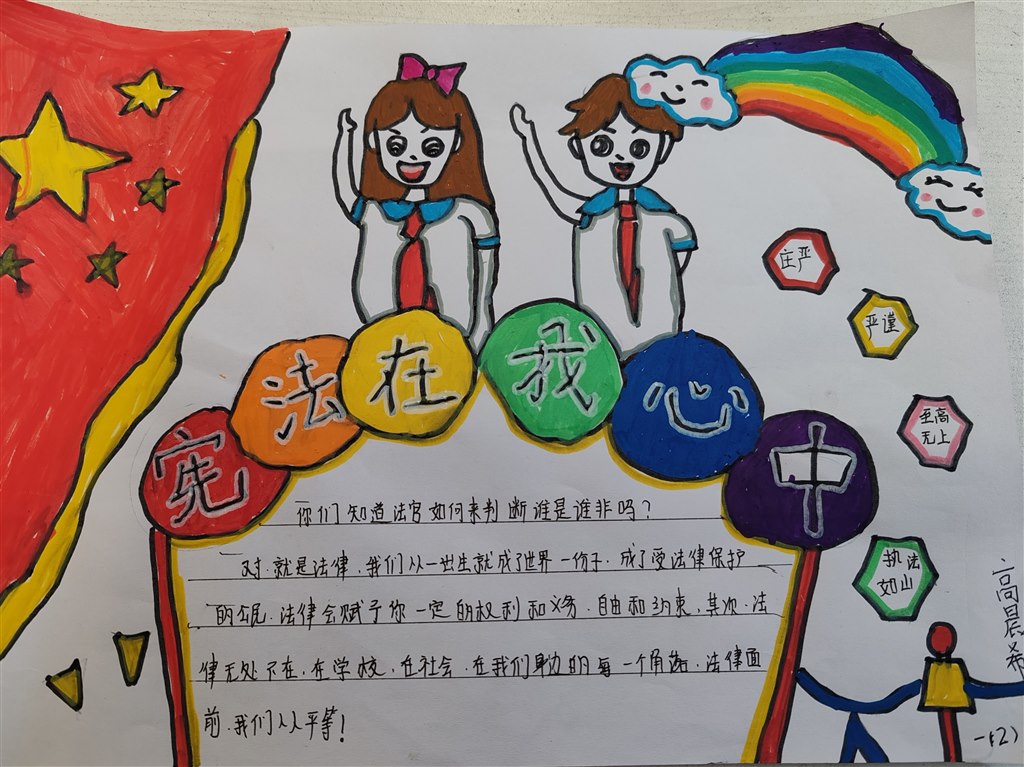 宪法在我心中
庄严
严谨
至高
无上
执法
如山
你们知道法官如何来判断谁是谁非吗？
对.就是法律.我们从一出生就成了世界一份子.成了受法律保护
的公民.法律会赋予你一定的权利和义务.自由和约束.其次.法
律无处不在.在学校.在社会.在我们身边的每一个角落.法律面
前.我们人人平等！
高晨希
一(2)